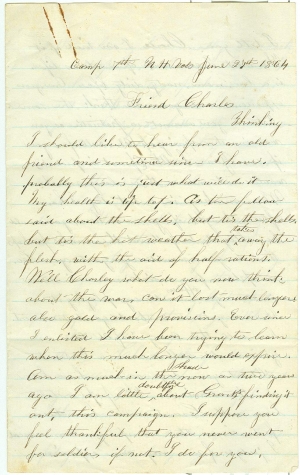 Camp 7th N H Vols June 27th 1864
Friend Charles
Thinking
I should like to hear from an old
friend and sometime since I have.
probably this is just what induced it
My health is tip top. As the fellow
said about the shells. but tis the shells,
but tis the hot weather that takes away the
flesh. with the aid of half rations.
Well Charley what do you now think
about the war, can it last much longer
also gold and provisions. Ever since
I enlisted I have been trying to learn
when this much longer would expire.
Am as much in the dark now as two years
ago I am little doubtful about Grants finding it
out, this campaign. I suppose you
feel thankful that you never went
for soldier, if not, I do for you.